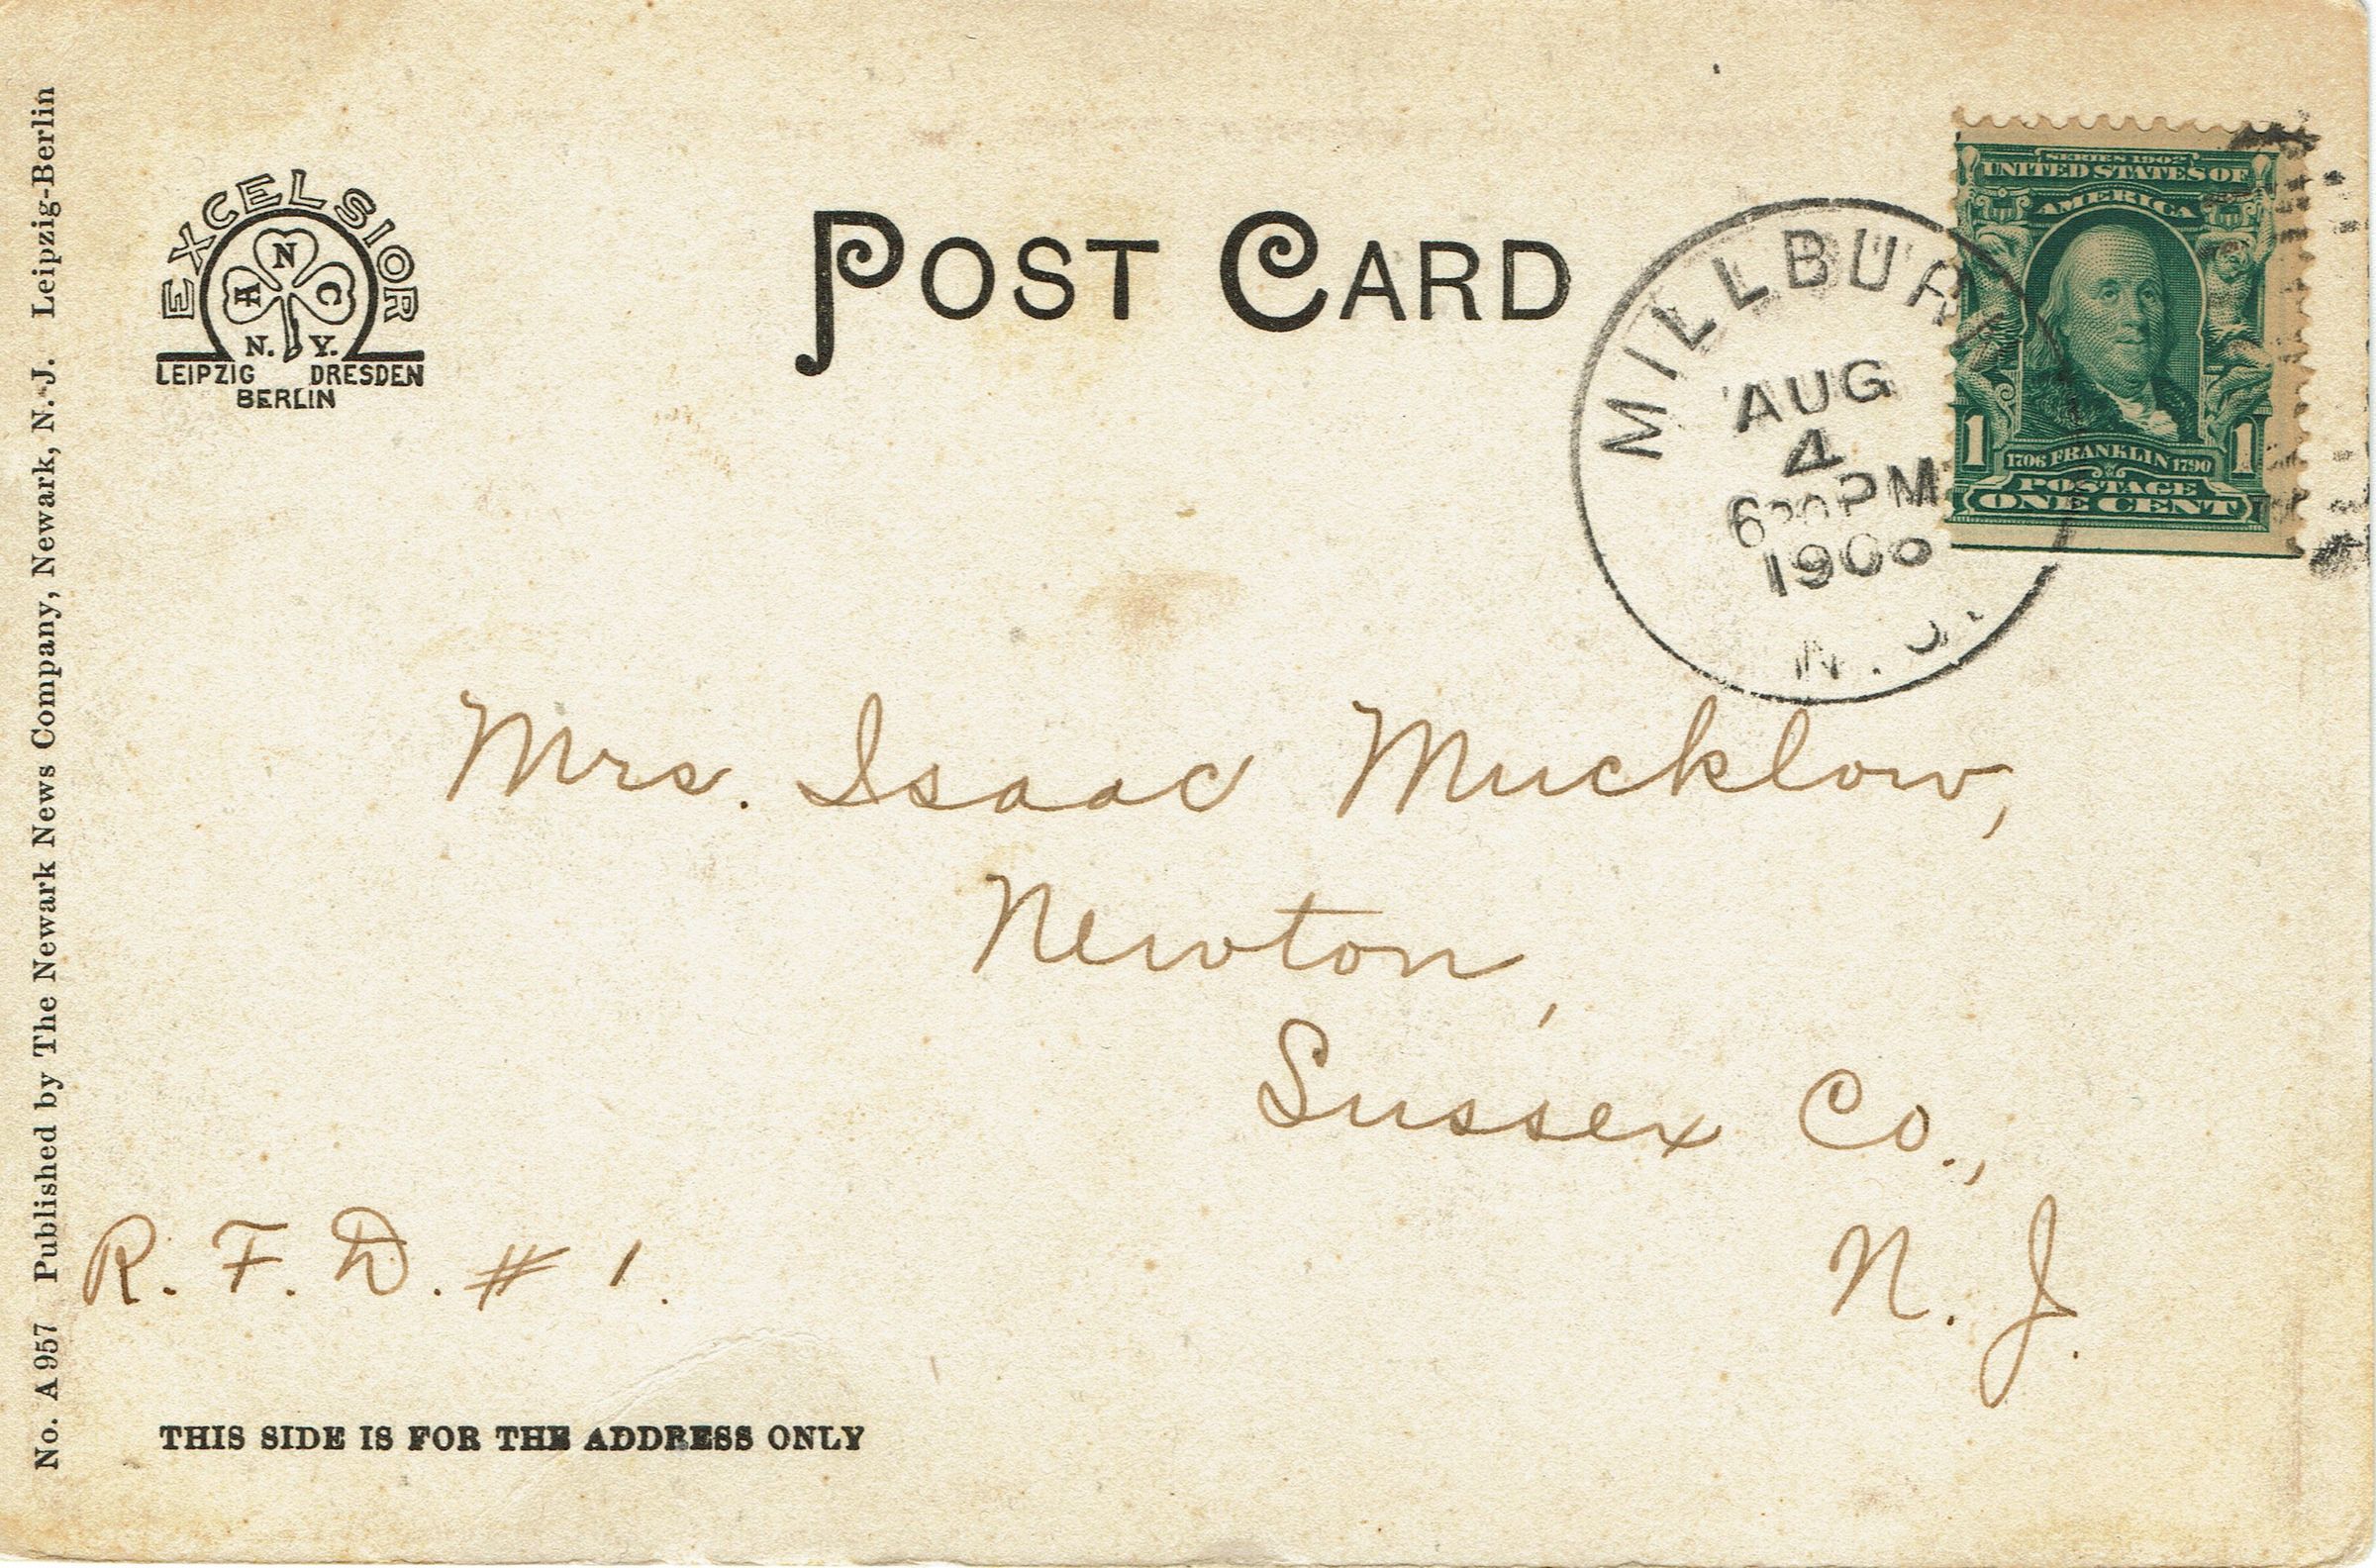 No. A 957 Published by The Newark News Company, Newark, N. J. Leipzig-Berlin
EXCELSIOR
A N C
N. Y.
LEIPZIG DRESDEN
BERLIN
POST CARD
MILLBUR
AUG
4
PM
N. J.
SERIES 1902
UNITED STATES OF
AMERICA
1 1
1706 FRANKLIN 1790
POSTAGE
ONE CENT
Mrs. Isaac Mucklow,
Newton,
Sussex Co.,
N. J.
R. F. D. # 1.
THIS SIDE IS FOR THE ADDRESS ONLY